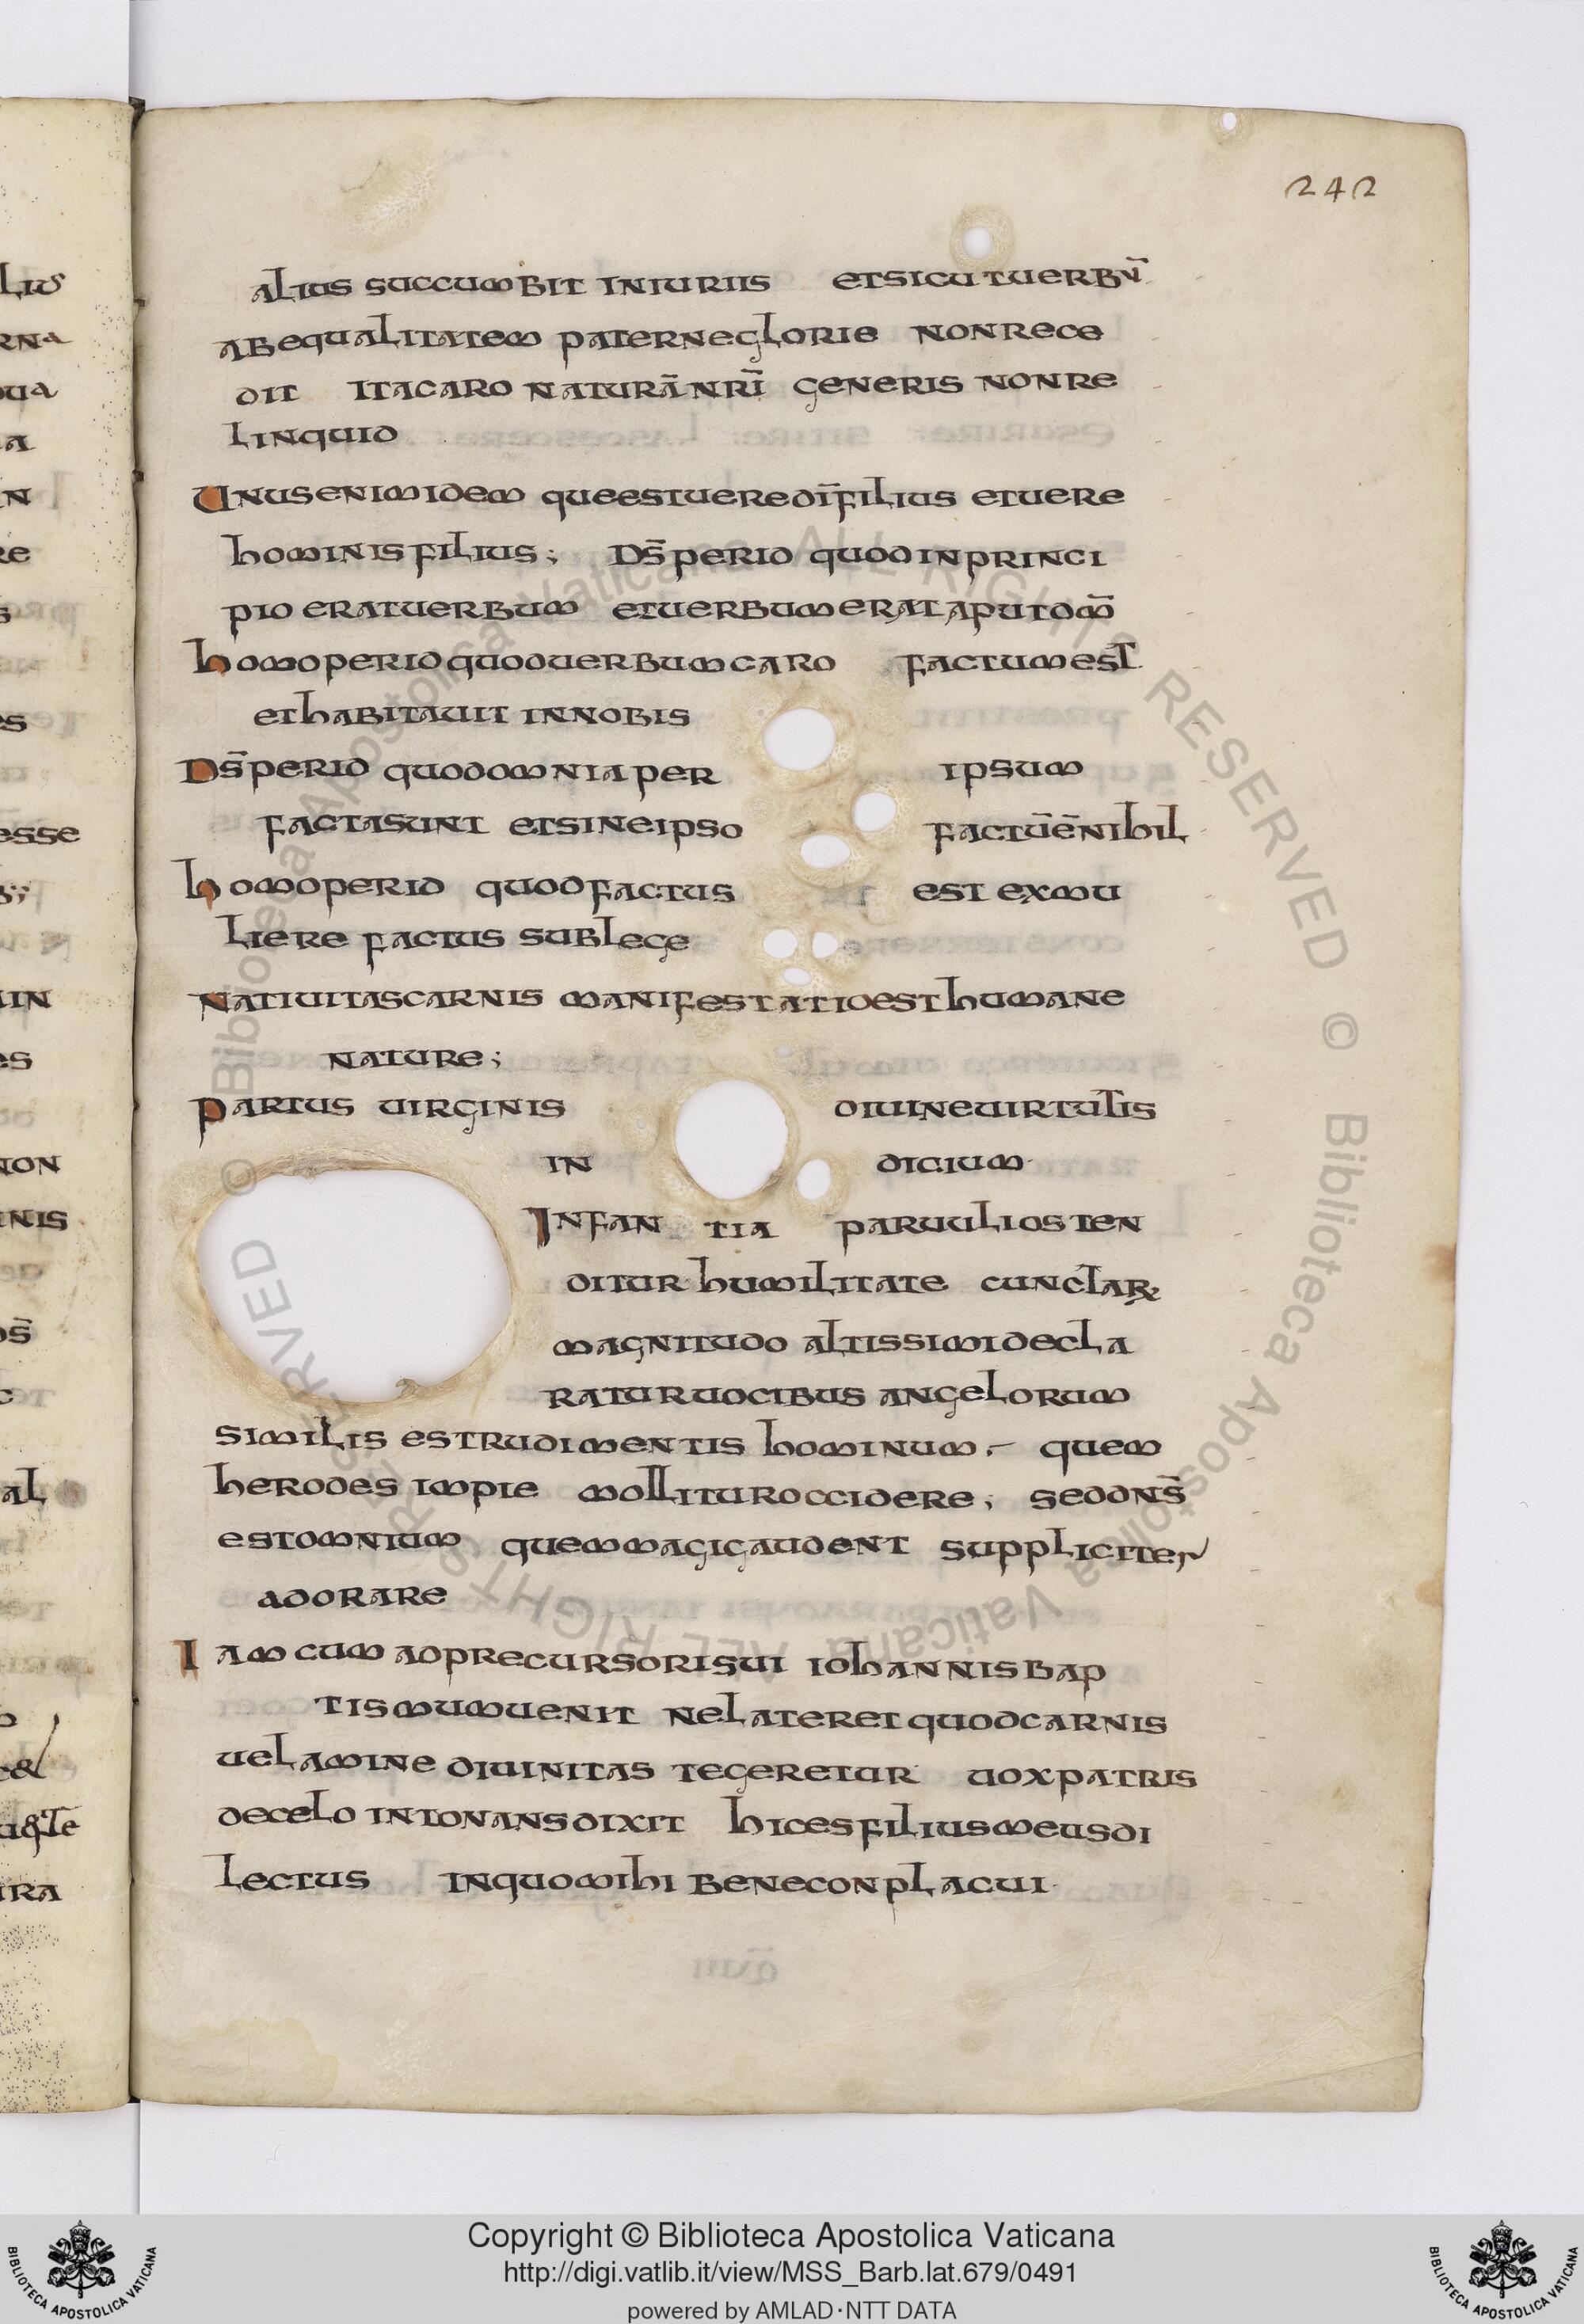 242
alius succumbit iniuriis et sicut uerbū
ab equalitatem paterne glorie non rece
dit Ita caro naturā nrī generis non re
linquid
Unus enim idem que est uere dī filius et uere
hominis filius; Ds̄ per id quod in princi
pio erat uerbum et uerbum erat aput dm̄
homo per id quod uerbum caro factum est
et habitauit in nobis
Ds̄ per id quod omnia per ipsum
facta sunt et sine ipso factū ē nihil
homo per id quod factus est ex mu
liere factus sub lege
Natiuitas carnis manifestatio est humane
nature;
Partus uirginis diuine uirtutis
in dicium
Infan tia paruuli osten
ditur humilitate cunctarꝝ
magnitudo altissimi decla
ratur uocibus angelorum
similis est rudimentis hominum. quem
herodes impie mollitur occidere; sed dns̄
est omnium quem magi gaudent suppliciter
adorare
Iam cum ad precursoris sui iohannis bap
tismum uenit ne lateret quod carnis
uelamine diuinitas tegeretur uox patris
de celo intonans dixit hic es filius meus di
lectus in quo mihi bene conplacui
Copyright © Biblioteca Apostolica Vaticana
http://digi.vatlib.it/view/MSS_Barb.lat.679/0491
powered by AMLAD·NTT DATA
BIBLIOTECA APOSTOLICA VATICANA
BIBLIOTECA APOSTOLICA VATICANA
© Biblioteca Apostolica Vaticana ALL RIGHTS RESERVED
© Biblioteca Apostolica Vaticana ALL RIGHTS RESERVED